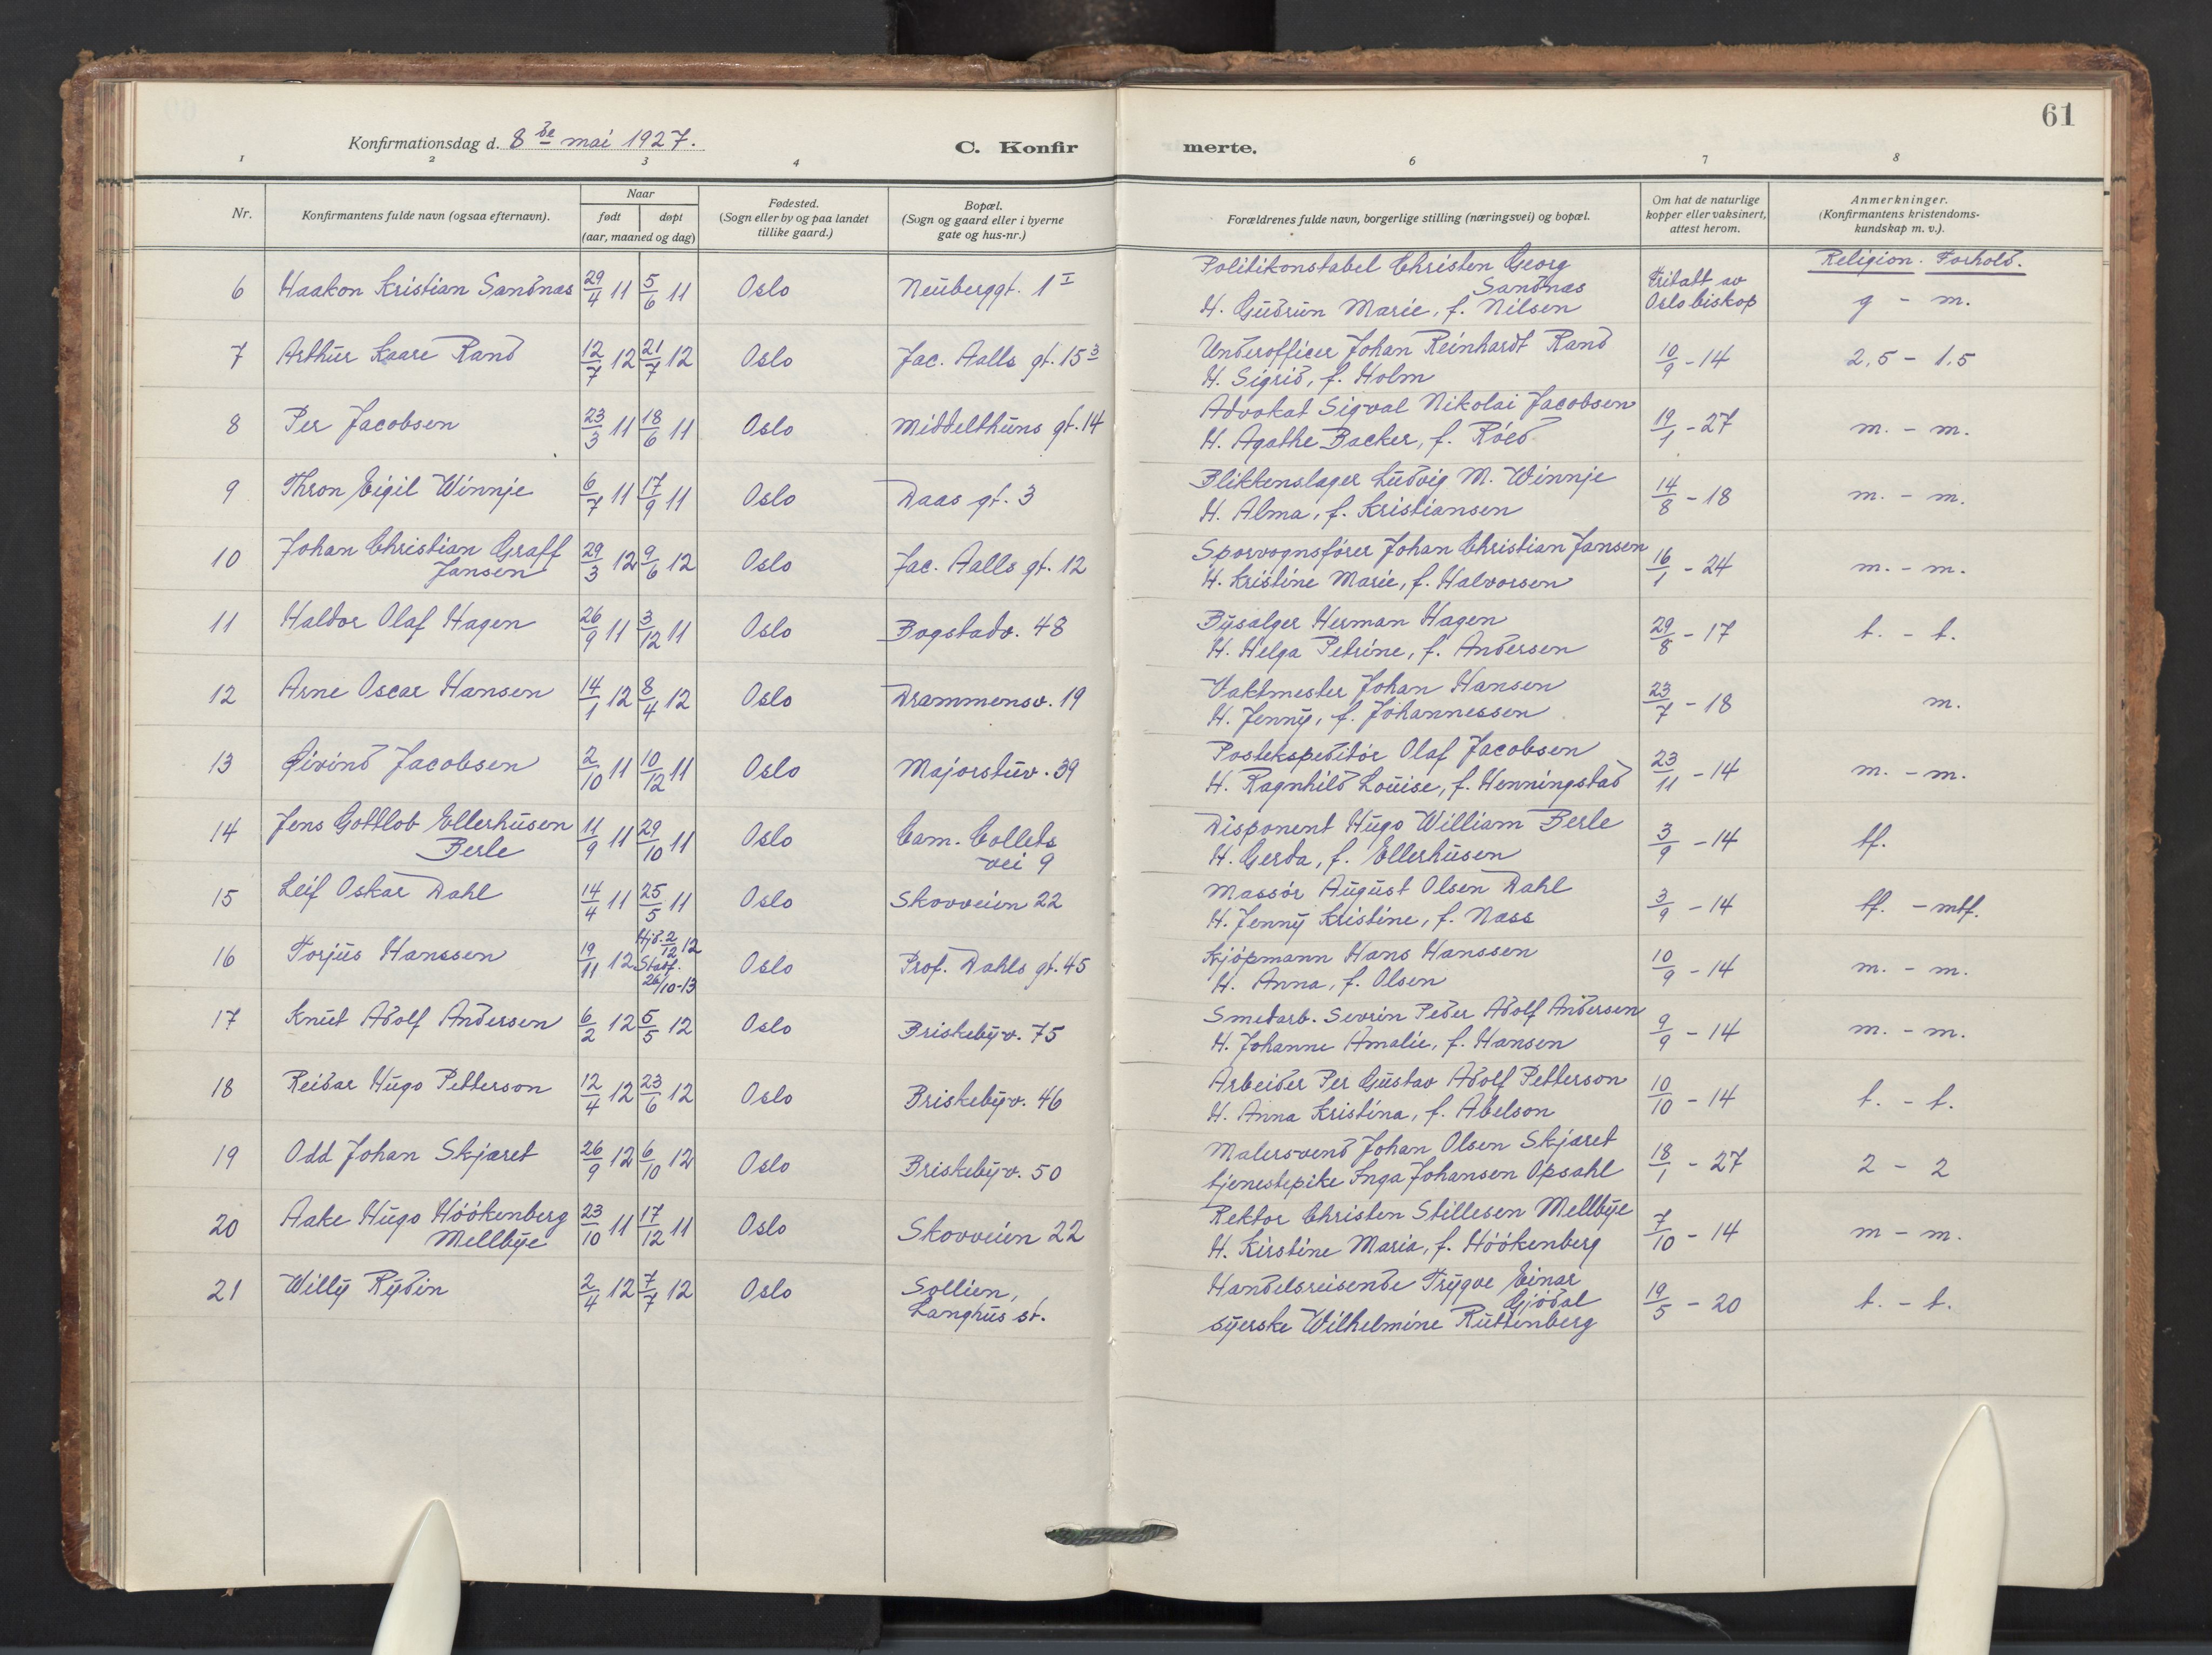 61
Konfirmationsdag d. 8de mai 1927.
C. Konfir merte.
1 2 3 4 6 7 8
Nr.
Konfirmantens fulde navn (ogsaa efternavn).
Naar
født døpt
(aar, maaned og dag)
Fødested.
(Sogn eller by og paa landet
tillike gaard.)
Bopæl.
(Sogn og gaard eller i byerne
gate og hus-nr.)
Forældrenes fulde navn, borgerlige stilling (næringsvei) og bopæl.
Om hat de naturlige
kopper eller vaksinert,
attest herom.
Anmerkninger.
(Konfirmantens kristendoms-
kundskap m. v.).
Religion. Forhold.
6 Haakon Kristian Sandnæs 29/4 11 5/6 11 Oslo Neuberggt. 1 I
Politikonstabel Christen Georg
Sandnæs
H. Gudrun Marie, f. Nilsen
Fritatt av
Oslo biskop
g - m.
7 Arthur Kaare Rand 12/7 12 21/7 12 Oslo Jac. Aalls gt. 15 3
Underofficer Johan Reinhardt Rand
H. Sigrid, f. Holm
10/9 - 14 2,5 - 1,5
8 Per Jacobsen 23/3 11 18/6 11 Oslo Middelthuns gt. 14
Advokat Sigval Nikolai Jacobsen
H. Agathe Backer, f. Röed
19/1 - 27 m. - m.
9 Thron Eigil Winnje 6/7 11 17/9 11 Oslo Daas gt. 3
Blikkenslager Ludvig M. Winnje
H. Alma, f. Kristiansen
14/8 - 18 m. - m.
10 Johan Christian Graff
Jansen 29/3 12 9/6 12 Oslo Jac. Aalls gt. 12
Sporvognsfører Johan Christian Jansen
H. Kristine Marie, f. Halvorsen
16/1 - 24 m. - m.
11 Haldor Olaf Hagen 26/9 11 3/12 11 Oslo Bogstadv. 48
Bysælger Herman Hagen
H. Helga Petrine, f. Andersen
29/8 - 17 t. - t.
12 Arne Oscar Hansen 14/1 12 8/4 12 Oslo Drammensv. 19
Vaktmester Johan Hansen
H. Jenny, f. Johannessen
23/7 - 18 m.
13 Øivind Jacobsen 2/10 11 10/12 11 Oslo Majorstuv. 39
Postekspeditör Olaf Jacobsen
H. Ragnhild Louise, f. Henningstad
23/11 - 14 m. - m.
14 Jens Gottlob Ellerhusen
Berle 11/9 11 29/10 11 Oslo Cam. Collets
vei 9
Disponent Hugo William Berle
H. Gerda, f. Ellerhusen
3/9 - 14 tf.
15 Leif Oskar Dahl 14/4 11 25/5 11 Oslo Skovveien 22
Massör August Olsen Dahl
H. Jenny Kristine, f. Næss
3/9 - 14 tf. - mtf.
16 Torjus Hanssen 19/11 12 Hjd. 2/12 12
Stadf.
26/10-13 Oslo Prof. Dahls gt. 45
Kjöpmann Hans Hanssen
H. Anna, f. Olsen
10/9 - 14 m. - m.
17 Knut Adolf Andersen 6/2 12 5/5 12 Oslo Briskebyv. 75
Smedarb. Sevrin Peder Adolf Andersen
H. Johanne Amalie, f. Hansen
9/9 - 14 m. - m.
18 Reidar Hugo Petterson 12/4 12 23/6 12 Oslo Briskebyv. 46
Arbeider Per Gustav Adolf Petterson
H. Anna Kristina, f. Abelson
10/10 - 14 t. - t.
19 Odd Johan Skjæret 26/9 12 6/10 12 Oslo Briskebyv. 50
Malersvend Johan Olsen Skjæret
tjenestepike Inga Johansen Opsahl
18/1 - 27 2 - 2
20 Aake Hugo Höökenberg
Mellbye 23/10 11 17/12 11 Oslo Skovveien 22
Rektor Christen Stillesen Mellbye
H. Kirstine Maria, f. Höökenberg
7/10 - 14 m - m.
21 Willy Rydin 2/4 12 7/7 12 Oslo Sollien,
Langhus st.
Handelsreisende Trygve Einar
Gjödal
syerske Wilhelmine Ruttenberg
19/5 - 20 t. - t.